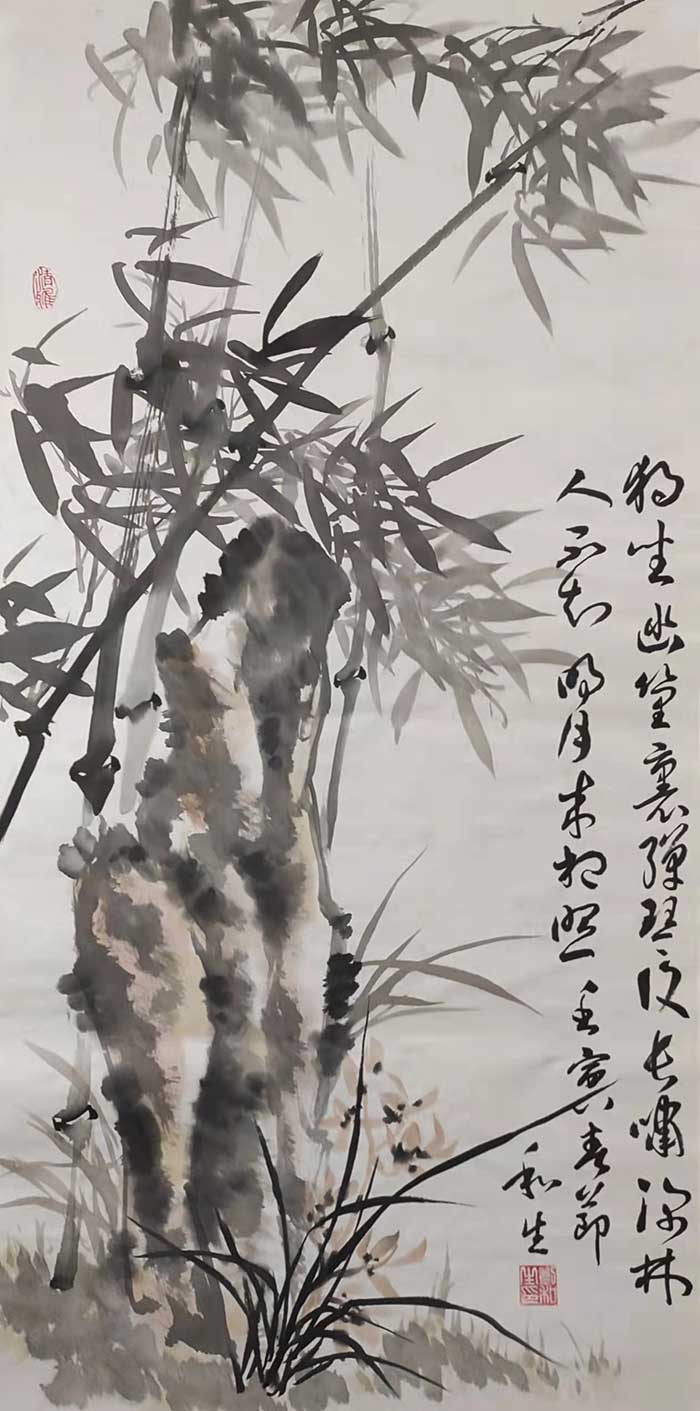 独坐幽篁裏弹琴复长嘯深林
人不知明月来相照壬寅春節
和生